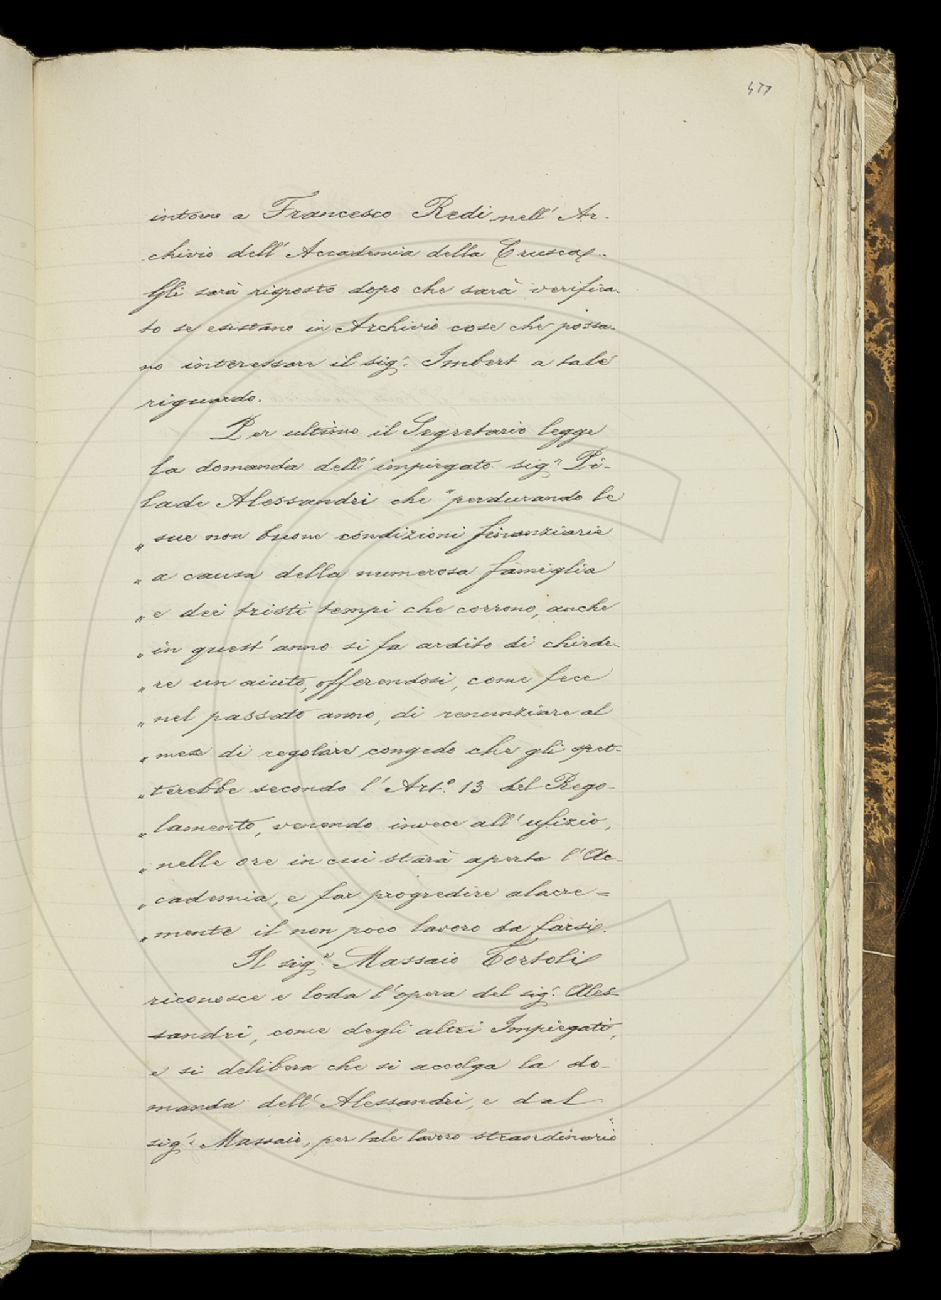 477
intorno a Francesco Redi nell' Ar-
chivio dell' Accademia della Crusca.
Gli sarà risposto dopo che sarà verifica-
to se esistano in Archivio cose che possa-
no interessare il sig.r Imbert a tale
riguardo.
Per ultimo il Segretario legge
la domanda dell' impiegato sig.r Pi-
lade Alessandri che "perdurando le
" sue non buone condizioni finanziarie
" a causa della numerosa famiglia
" e dei tristi tempi che corrono, anche
" in quest' anno si fa ardito di chiede-
" re un aiuto, offerendosi, come fece
" nel passato anno, di renunziare al
" mese di regolare congedo che gli spet-
" terebbe secondo l' Art.o 13 del Rego-
" lamento, venendo invece all' ufizio,
" nelle ore in cui starà aperta l' Ac-
" cademia, e far progredire alacre=
" mente il non poco lavoro da farsi.
Il sig.r Massaio Tortoli
riconosce e loda l' opera del sig.r Ales-
sandri, come degli altri Impiegati,
e si delibera che si accolga la do-
manda dell' Alessandri, e dal
sig.r Massaio, per tale lavoro straordinario